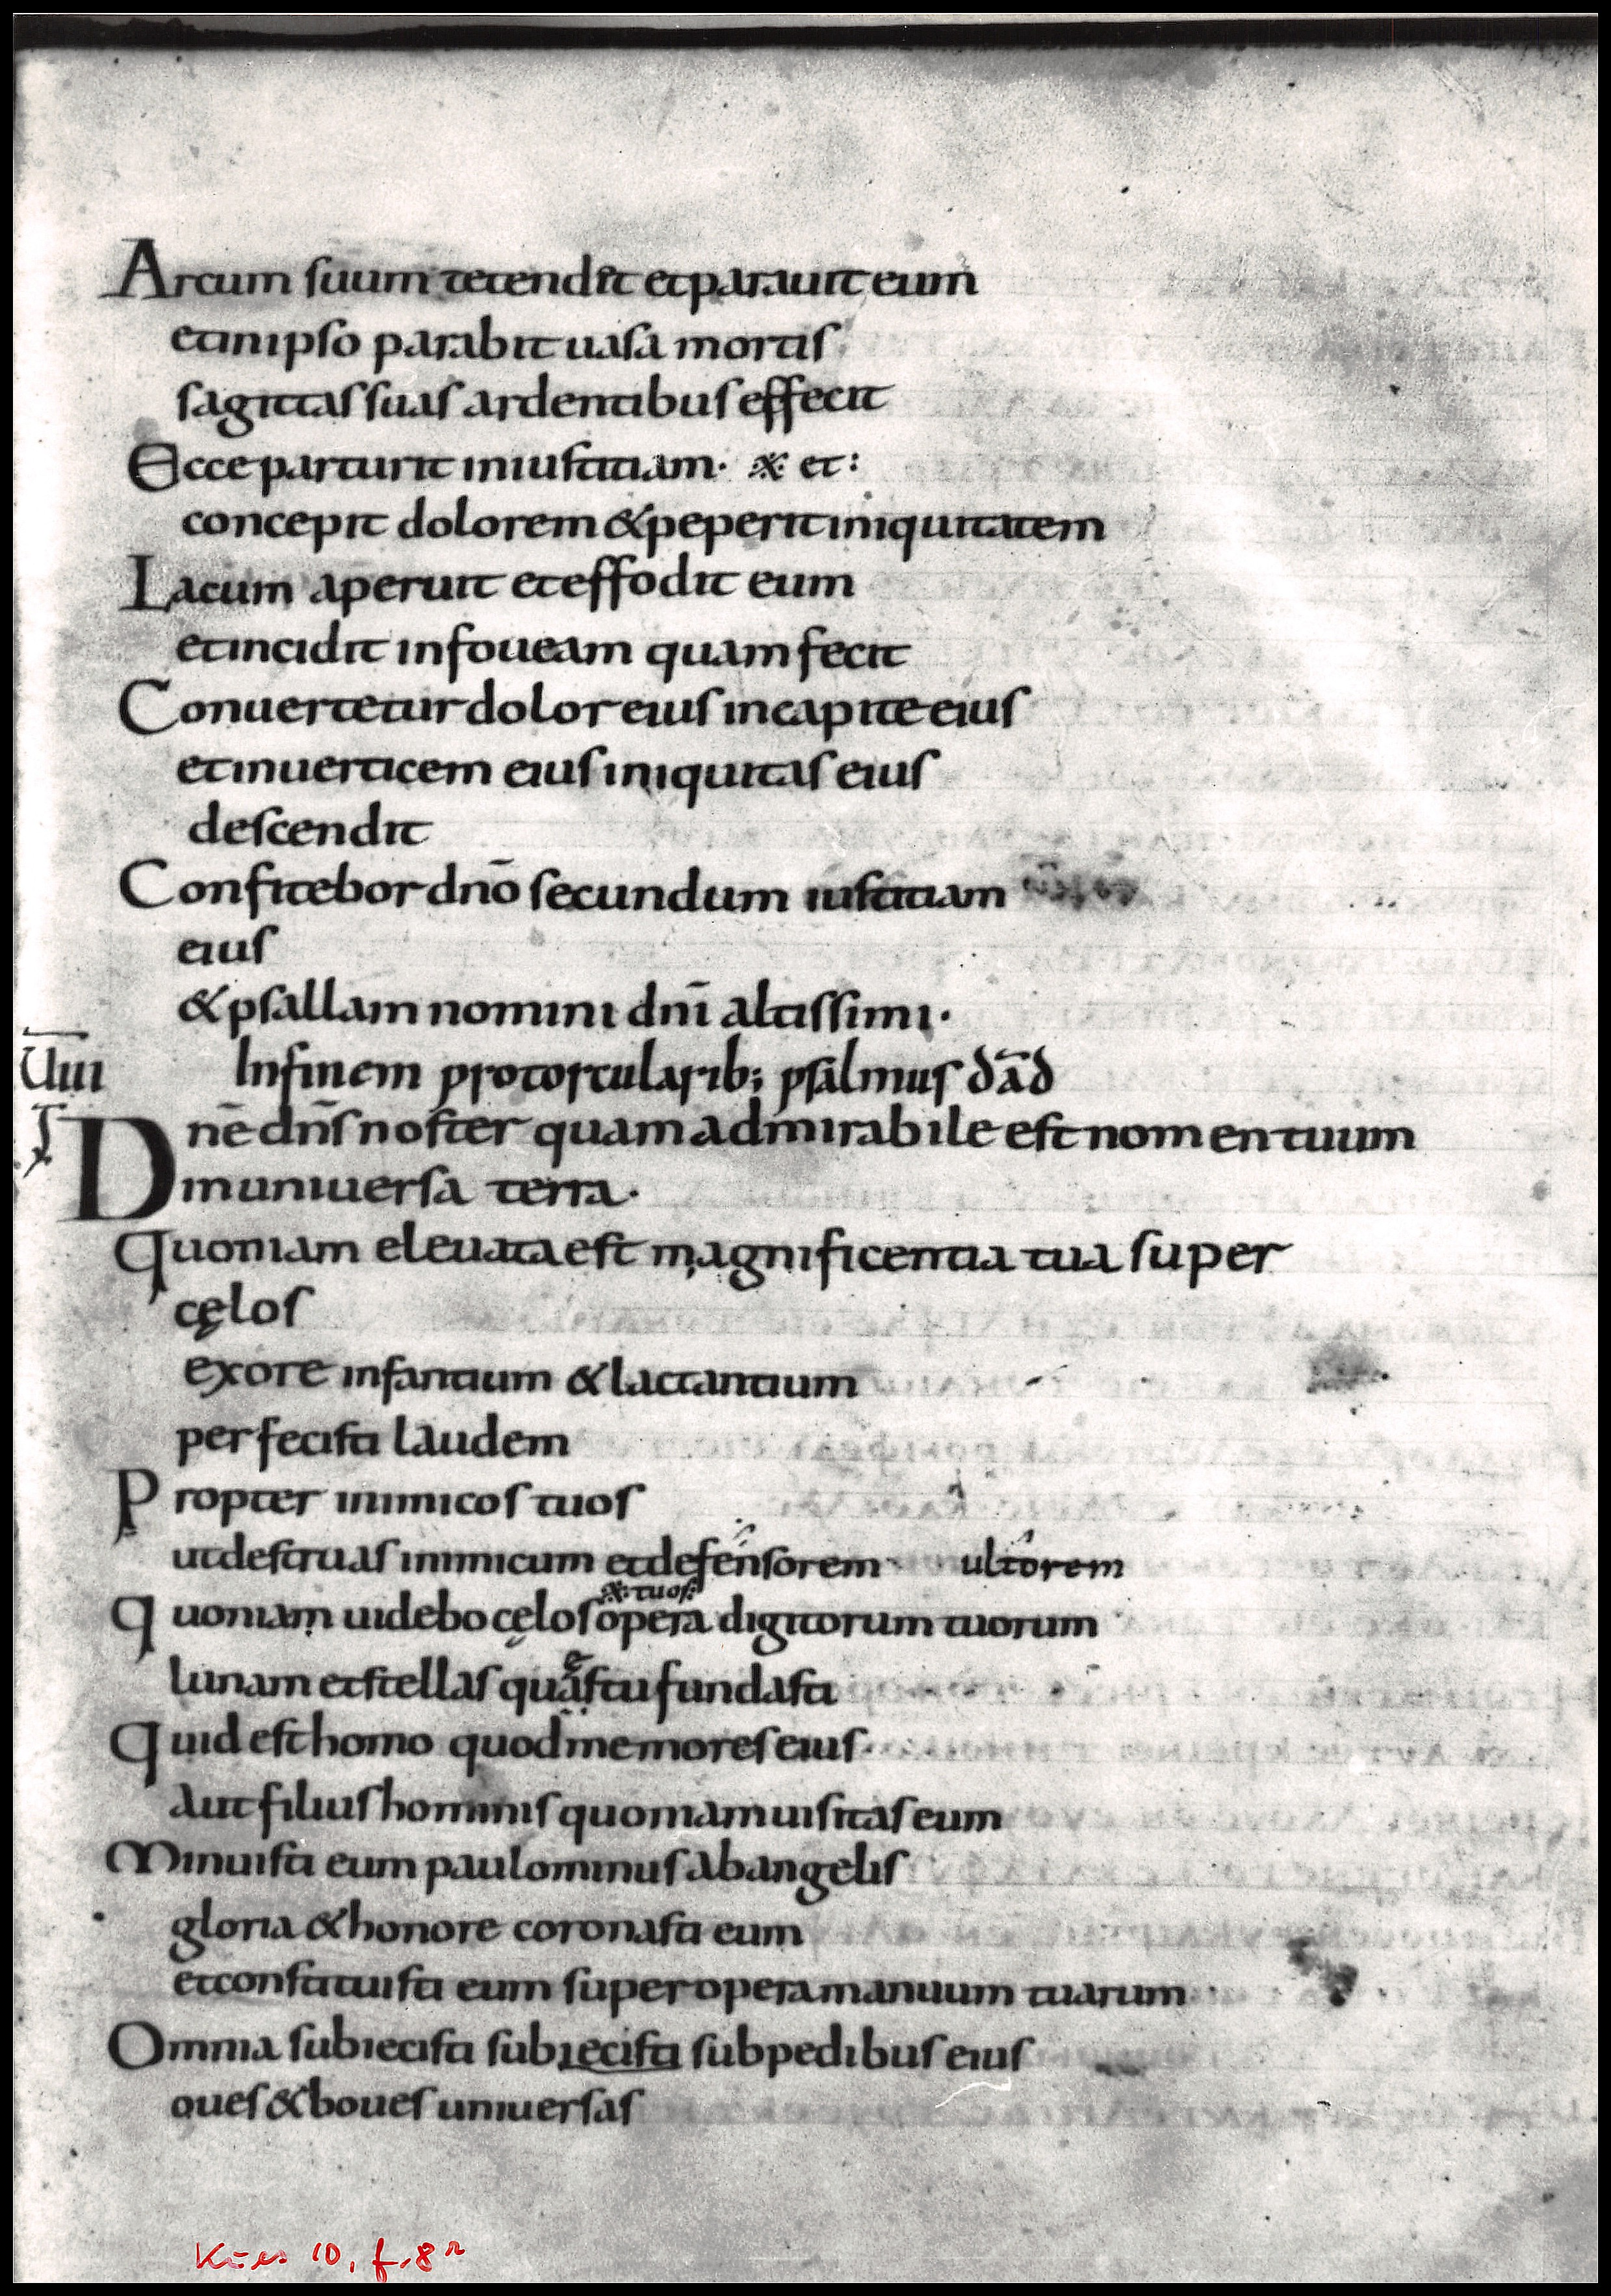 Arcum suum tetendit et parauit eum
et in ipso parabit uasa mortis
sagittas suas ardentibus effecit
Ecce parturit iniustitiam· ※ et:
concepit dolorem & peperit iniquitatem
Lacum aperuit et effodit eum
et incidit in foueam quam fecit
Conuertetur dolor eius in capite eius
et in uerticem eius iniquitas eius
descendit
Confitebor dno̅ secundum iustitiam
eius
& psallam nomini dni̅ altissimi·
Uiii In finem pro torcularib; psalmus da̅d
Dne̅ dn̅s noster quam admirabile est nomen tuum
in uniuersa terra·
Quoniam eleuata est magnificentia tua super
cęlos
ex ore infantium & lactantium
perfecisti laudem
Propter inimicos tuos
ut destruas inimicum et defensorem ultorem
※ tuos:
quoniam uidebo cęlos opera digitorum tuorum
lunam et stellas quas tu fundasti
Quid est homo quod memores eius·
aut filius hominis quoniam uisitas eum
Minuisti eum paulominus ab angelis
gloria & honore coronasti eum
et constituisti eum super opera manuum tuarum
Omnia subiecisti subiecisti sub pedibus eius
oues & boues uniuersas